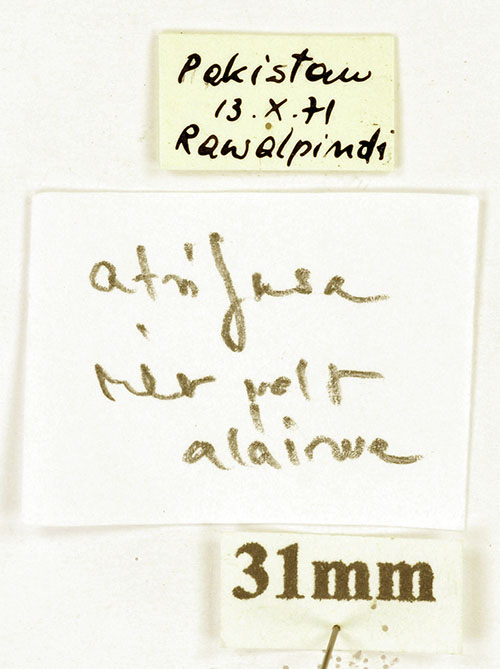 Pakistan
13.X.71
Rawalpindi
atrifusa
név volt
aláirva
31mm